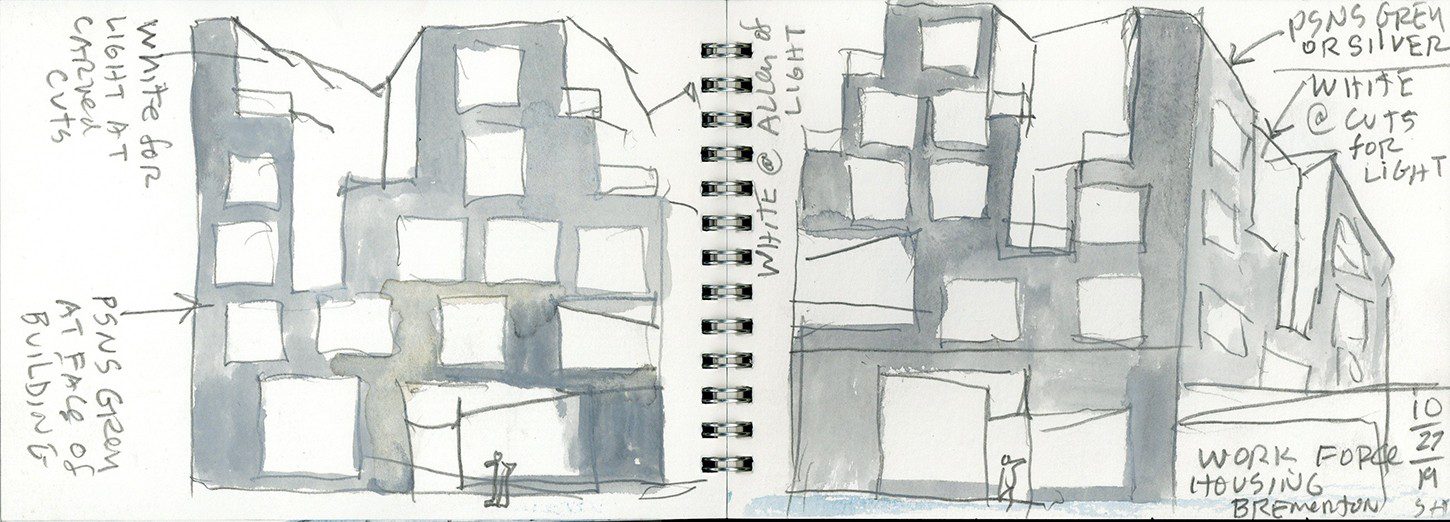 White for
LIGHT AT
CARVED
CUTS
PSNS GREY
AT FACE OF
BUILDING
WHITE @ ALLEY OF
LIGHT
PSNS GREY
OR SILVER
WHITE
@ CUTS
for
LIGHT
WORK FORCE
HOUSING
BREMERTON
10
27
19
SH